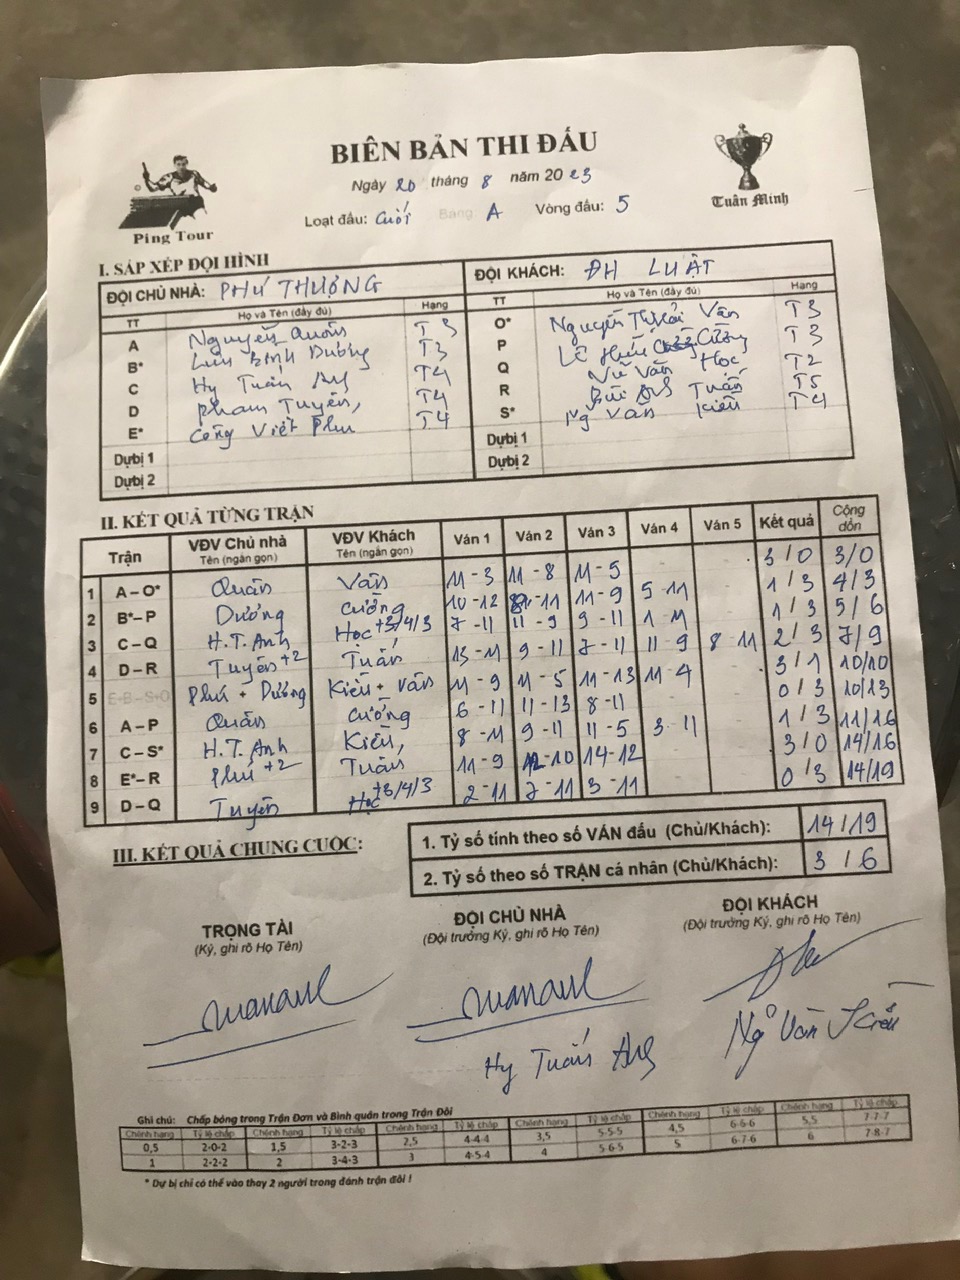 BIÊN BẢN THI ĐẤU
Ngày 20 tháng 8 năm 2023
Loạt đấu: Cuối Bảng A Vòng đấu: 5
Ping Tour
Tuấn Minh
I. SẮP XẾP ĐỘI HÌNH
ĐỘI CHỦ NHÀ: PHÚ THƯỢNG ĐỘI KHÁCH: ĐH LUẬT
TT Họ và Tên (đầy đủ) Hạng TT Họ và Tên (đầy đủ) Hạng
A Nguyễn Quân T3 O* Nguyễn Văn T3
B* Lưu Bình Dương T3 P Lê Hữu Cường T3
C Hy Tuấn Anh T4 Q Vũ Văn Học T2
D Phạm Tuyên, T4 R Bùi Tuấn T5
E* Công Viết Phú T4 S* Ng Văn Kiên T4
Dự bị 1 Dự bị 1
Dự bị 2 Dự bị 2
II. KẾT QUẢ TỪNG TRẬN
Trận VĐV Chủ nhà Tên (ngắn gọn) VĐV Khách Tên (ngắn gọn) Ván 1 Ván 2 Ván 3 Ván 4 Ván 5 Kết quả Cộng dồn
1 A – O* Quân Văn 11-3 11-8 11-5 3/0 3/0
2 B* – P Dương Cường 10-12 11-9 5-11 1/3 4/3
3 C – Q H.T.Anh Học +3/4/3 7-11 11-9 9-11 1-11 1/3 5/6
4 D – R Tuyên +2 Tuấn 13-11 9-11 7-11 11-9 8-11 2/3 7/9
5 E-B-S+O Phú + Dương Kiên + Văn 11-9 11-5 11-13 11-4 3/1 10/10
6 A – P Quân Cường 6-11 11-13 8-11 0/3 10/13
7 C – S* H.T.Anh Kiên, 8-11 9-11 11-5 3-11 1/3 11/16
8 E* – R Phú +2 Tuấn 11-9 12-10 14-12 3/0 14/16
9 D – Q Tuyên Học +3/4/3 2-11 7-11 3-11 0/3 14/19
III. KẾT QUẢ CHUNG CUỘC:
1. Tỷ số tính theo số VÁN đấu (Chủ/Khách): 14/19
2. Tỷ số theo số TRẬN cá nhân (Chủ/Khách): 3/6
TRỌNG TÀI ĐỘI CHỦ NHÀ ĐỘI KHÁCH
(Ký, ghi rõ Họ Tên) (Đội trưởng Ký, ghi rõ Họ Tên) (Đội trưởng Ký, ghi rõ Họ Tên)
Hy Tuấn Anh Ngô Văn Kiên
Ghi chú: Chấp bóng trong Trận Đơn và Bình quân trong Trận Đôi
Chênh hạng Tỷ lệ chấp Chênh hạng Tỷ lệ chấp Chênh hạng Tỷ lệ chấp Chênh hạng Tỷ lệ chấp Chênh hạng Tỷ lệ chấp Chênh hạng Tỷ lệ chấp
0,5 2-0-2 1,5 3-2-3 2,5 4-4-4 3,5 5-5-5 4,5 6-6-6 5,5 7-7-7
1 2-2-2 2 3-4-3 3 4-5-4 4 5-6-5 5 6-7-6 6 7-8-7
* Dự bị chỉ có thể vào thay 2 người trong đánh trận đôi !